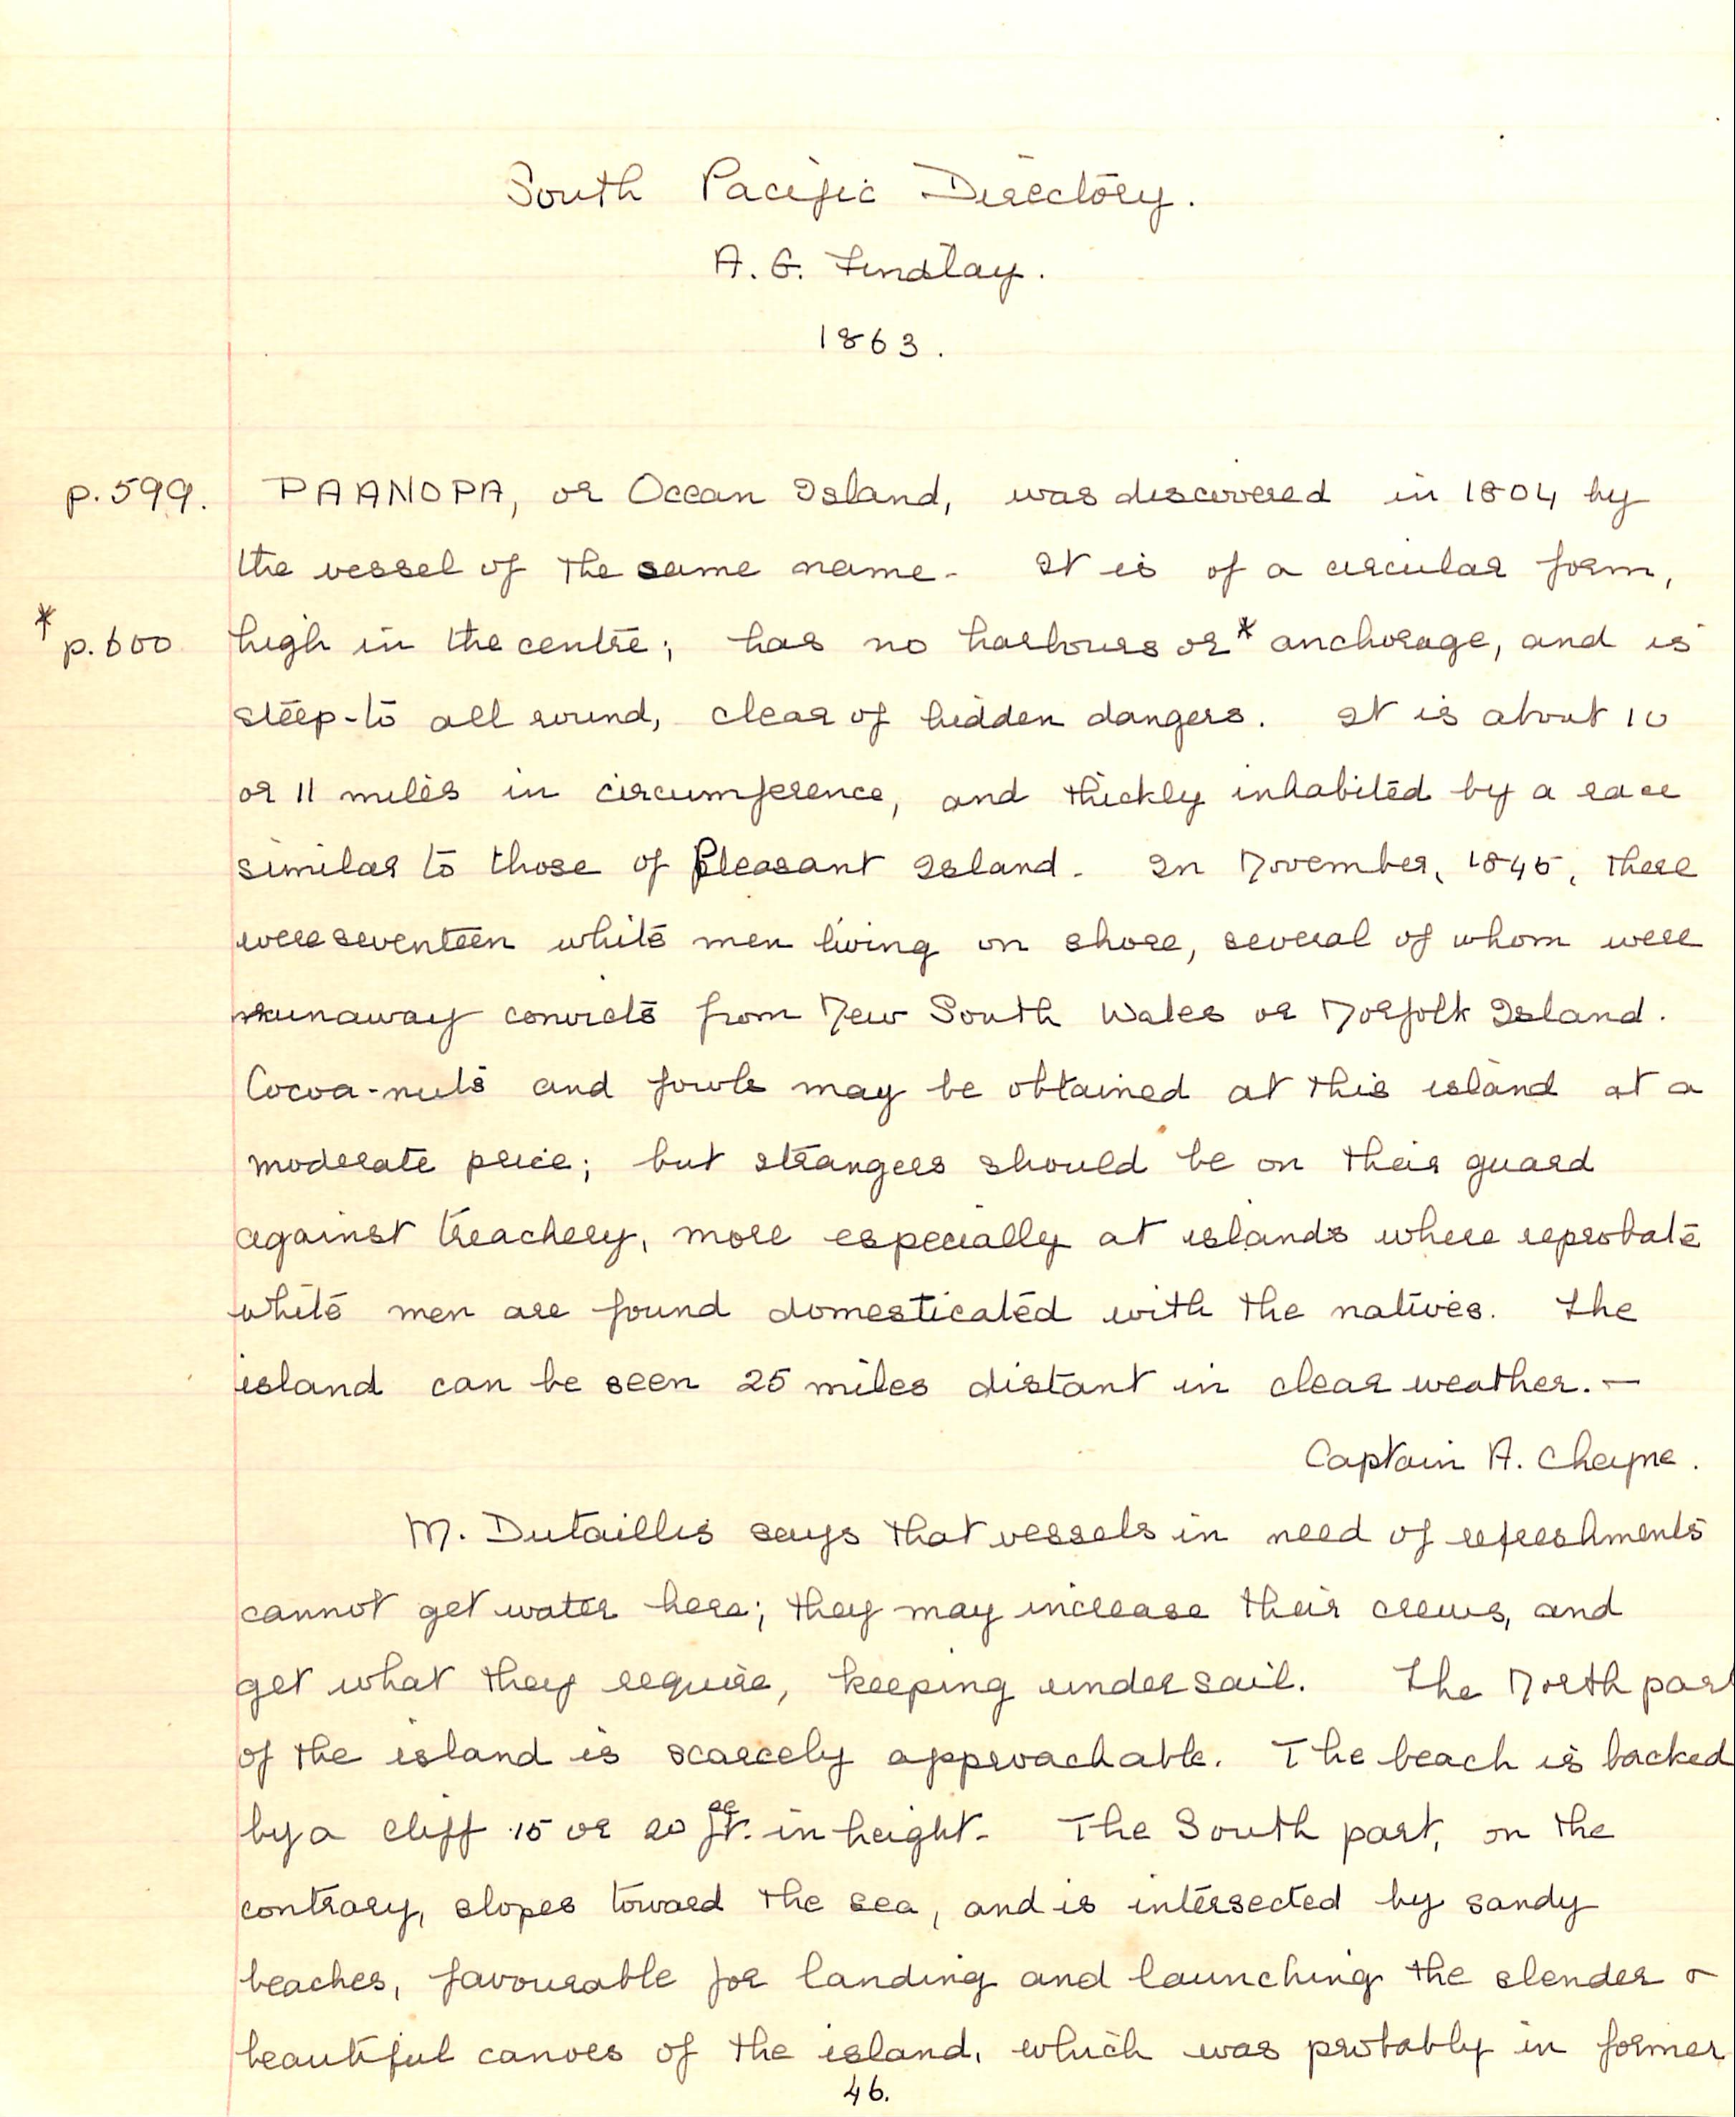 South Pacific Directory.
A. G. Findlay.
1863.
p.599. PAANOPA, or Ocean Island, was discovered in 1804 by
the vessel of the same name. It is of a circular form,
* p.600 high in the centre; has no harbours or * anchorage, and is
steep-to all round, clear of hidden dangers. It is about 10
or 11 miles in circumference, and thickly inhabited by a race
similar to those of Pleasant Island. In November, 1845, there
were seventeen white men living on shore, several of whom were
runaway convicts from New South Wales or Norfolk Island.
Cocoa-nuts and fowls may be obtained at this island at a
moderate price; but strangers should be on their guard
against treachery, more especially at islands where reprobate
white men are found domesticated with the natives. The
island can be seen 25 miles distant in clear weather. —
Captain A. Cheyne.
M. Dutaillis says that vessels in need of refreshments
cannot get water here; they may increase their crews, and
get what they require, keeping under sail. The North part
of the island is scarcely approachable. The beach is backed
by a cliff 15 or 20 ft. in height. The South part, on the
contrary, slopes toward the sea, and is intersected by sandy
beaches, favourable for landing and launching the slender &
beautiful canoes of the island, which was probably in former
46.